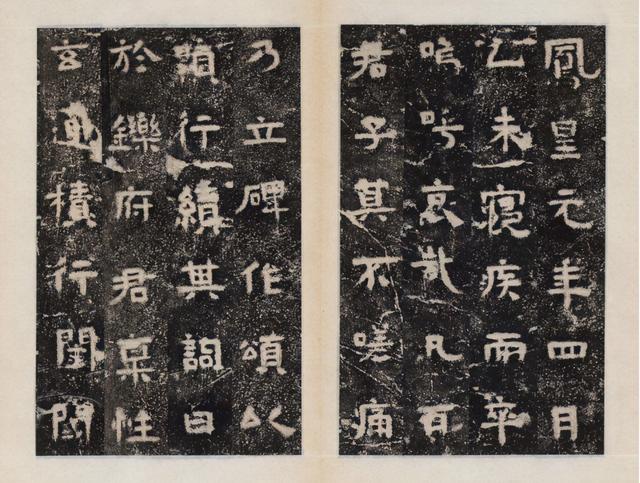 鳳皇元年四月
乙未寢疾而卒
嗚呼哀哉凡百
君子其不嗟痛
乃立碑作頌以
顯行績其詞曰
於鑠府君稟性
玄通積行閨